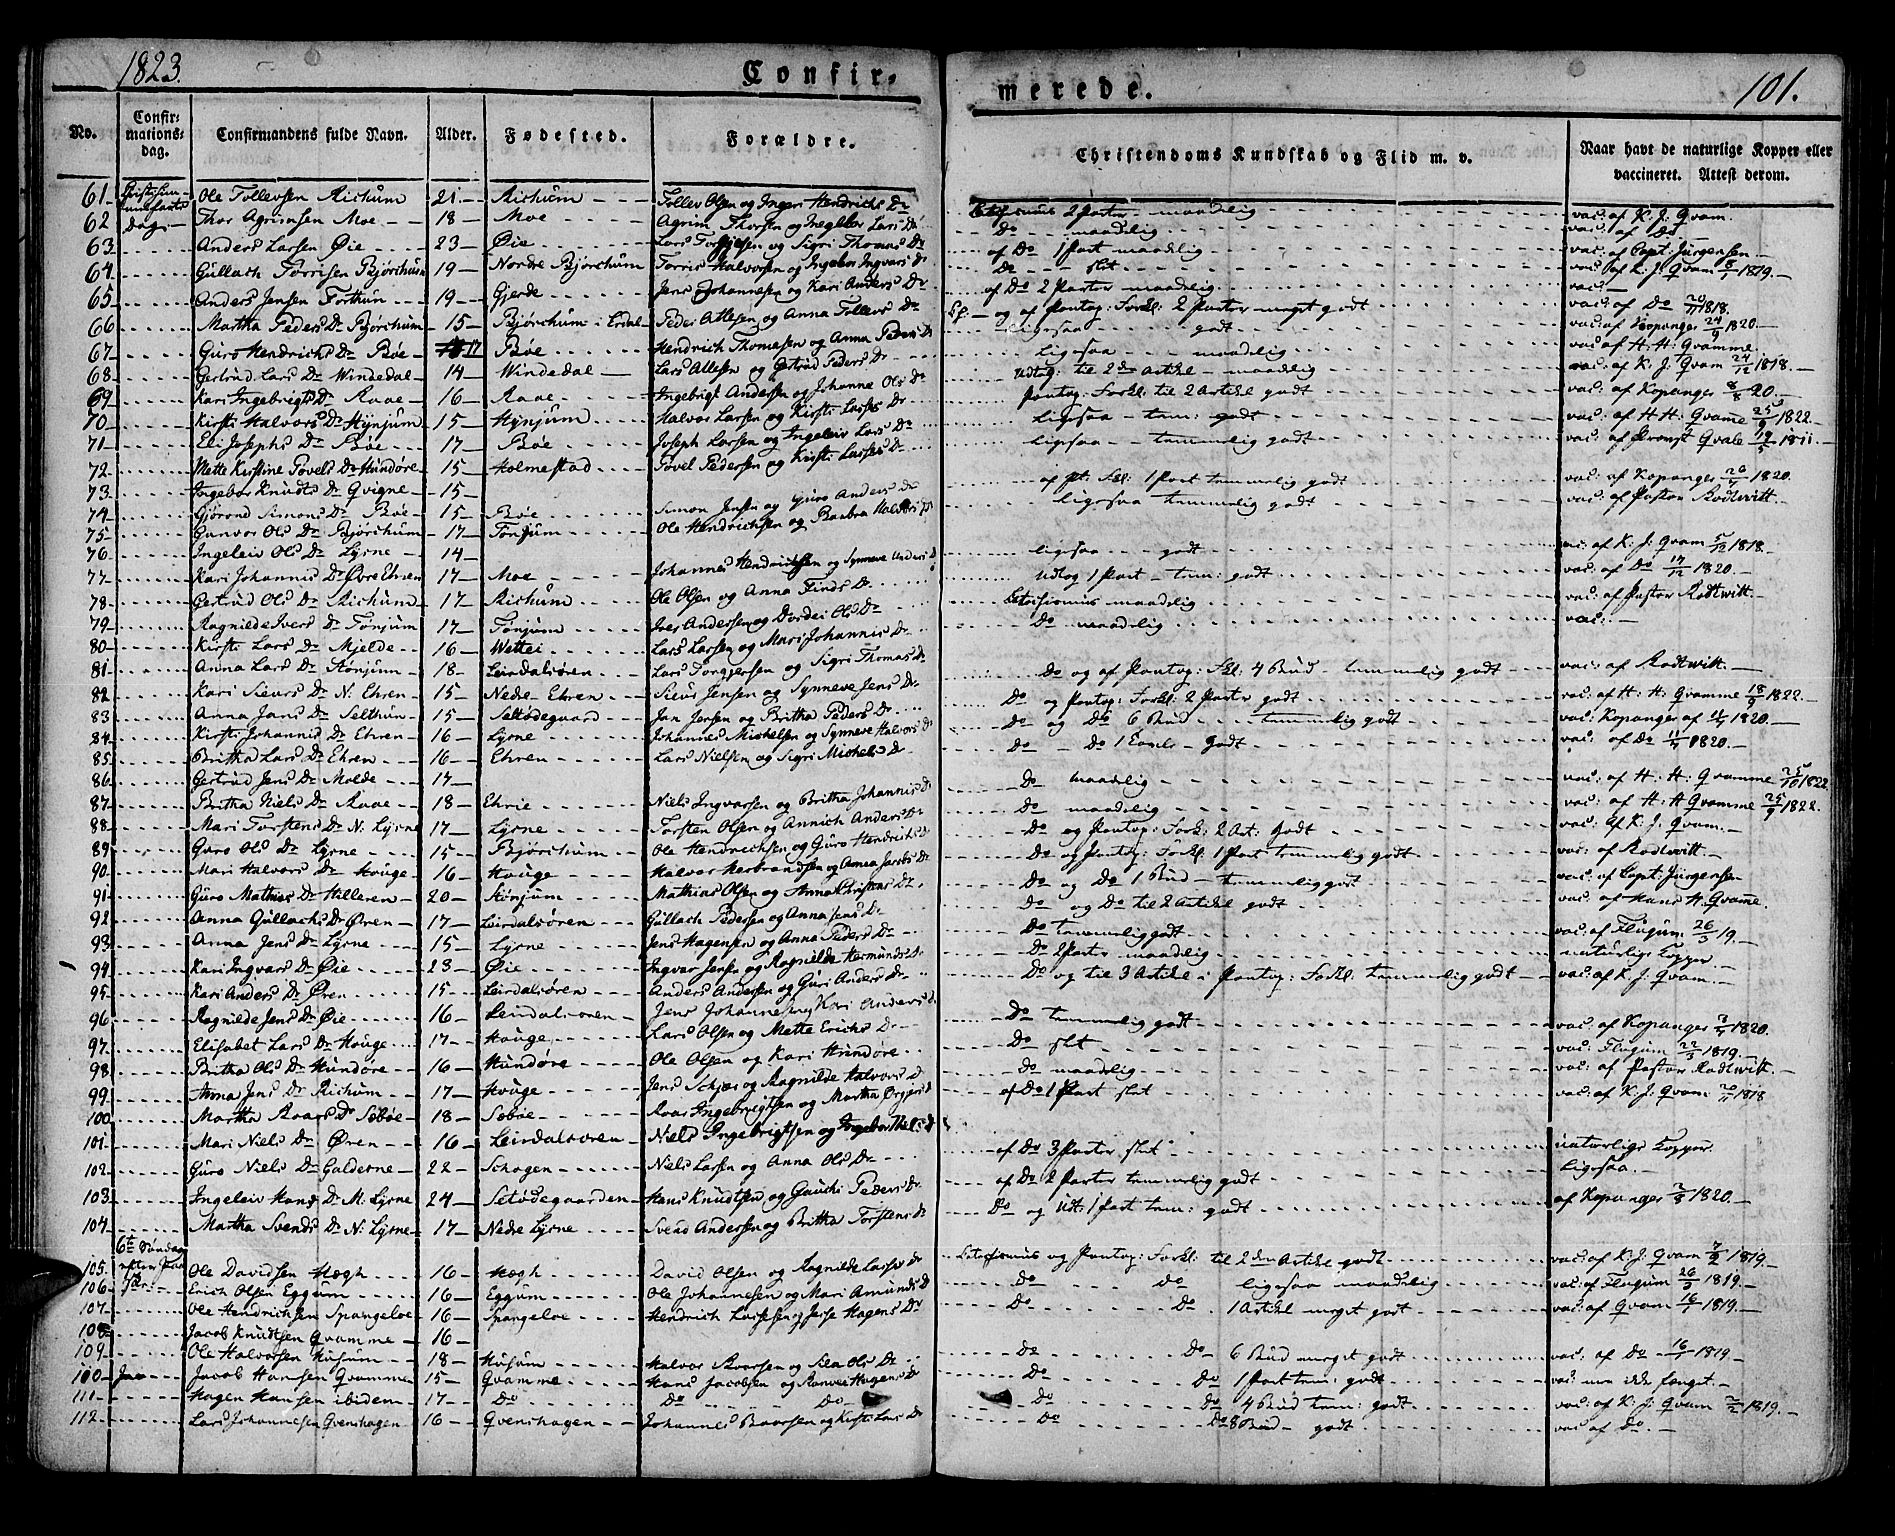 1823.
Confir-
merede.
101.
No.
Confir-
mations-
dag.
Confirmandens fulde Navn.
Alder.
Fødested.
Forældre.
Christendoms Kundskab og Flid m. v.
Naar havt de naturlige Kopper eller
vaccineret. Attest derom.
61 Ole Tollevsen Richum 21 Richum Tollev Olsen og Ingeri Hendrichs Dr 2 Parter maadelig vac: af K. J. Qvam
62 Dag Thor Agrimsen Moe 18 Moe Agrim Thorsen og Ingebor Lars Dr Do maadelig vac: af Do
63 Anders Larsen Øie 23 Øie Lars Torgjersen og Sigri Thomas Dr af Do 1 Part maadelig vac: af Capt. Jürgensen
64 Gullach Torrisen Bjørchum 19 Nordre Bjørchum Torris Halvorsen og Ingebor Ingvars Dr Do slet vac: af K. J. Qvam 1819
65 Anders Jensen Forthun 19 Gjerde Jens Johannesen og Kari Anders Dr af Do 2 Parter maadelig vac:
66 Martha Peders Dr Bjørchum 15 Bjørchum i Erdal Peder Atlesen og Anna Tollevs Dr og af Pontop: Forkl: 2 Parter meget godt vac: af Do 1818
67 Guro Hendrichs Dr Bøe 17 Bøe Hendrich Thomesen og Anna Peders Dr ligesaa godt vac: af Kopanger 24/9 1820
68 Gertrud Lars Dr Windedal 14 Windedal Lars Atlesen og Gertrud Peders Dr ligesaa maadelig vac: af H. H. Qvamme
69 Kari Ingebrigts Dr Aaae 16 Aaae Ingebrigt Andersen og Johanne Ols Dr Udtog: til 2den Artikl maadelig vac: af K. J. Qvam 24/12 1818
70 Kirsti Halvors Dr Hynjum 15 Hynjum Halvor Larsen og Kirsti Lasses Dr Pontop: Forkl: til 2 Artikl godt vac: af Kopanger 8/8 20
71 Eli Josephs Dr Bøe 17 Bøe Joseph Larsen og Ingeleiv Lars Dr ligesaa tem: godt vac: af H: H: Qvame 25/9 1822
72 Mette Kirstine Povels Dr Hundøre 15 Holmestad Povel Pedersen og Kirsti Lasses Dr ligesaa temmelig godt vac: af Provst Qvale 1811
73 Ingebor Knudts Dr Qvigne 15
74 Gjørond Simons Dr Bøe 15 Bøe Simon Jensen og Guro Anders Dr af Pt. Fkl: 1 Part temmelig godt vac: af Kopanger 1820
75 Gunvor Ols Dr Bjørchum 17 Tønjum Ole Hendrichsen og Baabra Halvors Dr ligesaa temmelig godt vac: af Pastor Rodtwitt
76 Ingeleiv Ols Dr Lyrne 14
77 Kari Johannis Dr Øvre Ehren 17 Moe Johannes Hendrichsen og Synneve Anders Dr ligesaa godt vac: K. J. Qvam 1818
78 Gertrud Ols Dr Richum 17 Richum Ole Olsen og Anna Finds Dr Udtog 1 Part tem: godt vac: af Do 17/12 1820
79 Ragnilde Ivers Dr Tønjum 17 Tønjum Iver Andersen og Dordei Ols Dr maadelig vac: af Pastor Rodtwitt
80 Kirsti Lars Dr Mjelde 16 Wettei Lars Larsen og Mari Johannis Dr Do maadelig vac:
81 Anna Lars Dr Stønjum 18 Leirdalsören Lars Torgjersen og Sigri Thomas Dr Do og af Pontop: Fkl: 4 Bud temmelig godt vac: af Rodtwitt
82 Kari Siurs Dr N. Ehren 15 Nedre Ehren Siur Jensen og Synneve Jens Dr Do og Pontop: Forkl: 2 Parter godt vac: af H: H: Qvamme 18/9 1822
83 Anna Jans Dr Selthun 15 Seltødegaard Jan Jorsen og Britha Peders Dr Do og Do 6 Bud temmelig godt vac: Kopanger af 1820
84 Kirsti Johannis Dr Ehren 16 Lyrne Johannes Michelsen og Synneve Halvors Dr Do Do godt vac: af Do 1820
85 Britha Lars Dr Ehren 16 Ehren Lars Nielsen og Sigri Michels Dr
86 Gertrud Jens Dr Molde 17 Do maadelig vac: af H: H: Qvamme 25/10 1822
87 Britha Niels Dr Aaae 18 Ehrie Niels Ingvarsen og Britha Johannis Dr Do maadelig vac: af H: H Qvamme 25/9 1822
88 Mari Torstens Dr N: Lyrne 17 Lyrne Torsten Olsen og Annich Anders Dr Do og Pontop: Fork: 2 Art: godt vac: af K. J. Qvam
89 Guro Ols Dr Lyrne 15 Bjørchum Ole Hendrichsen og Guro Hendrichs Dr Do og Pontop: Forkl 1 Part temmelig godt vac: af Rodtwitt
90 Mari Halvors Dr Houge 16 Houge Halvor Herbrandsen og Anna Jacobs Dr Do og Do 1 Bud temmelig godt vac: af Capt: Jürgensen
91 Guro Mathias Dr Hilleren 20 Stønjum Mathias Olsen og Anna Christens Dr Do og Do til 2 Artikl godt vac: af Hans H. Qvame
92 Anna Gullachs Dr Øren 17 Leirdalsören Gullach Pedersen og Anna Jens Dr Do temmelig godt vac: af Flugum 26/3 19
93 Anna Jens Dr Lyrne 15 Lyrne Jens Hagensen og Anna Peders Dr Do 2 Parter maadelig naturlige Kopper
94 Kari Ingvars Dr Øie 23 Øie Ingvar Jensen og Ragnilde Hermunds Dr Do og til 3 Artikl i Pontop: Forkl temmelig godt vac: af K. J. Qvam
95 Kari Anders Dr Øren 15 Leirdalsören Anders Andersen og Guri Anders Dr
96 Ragnilde Jens Dr Øie 16 Leirdalsören Jens Johannesen og Kari Anders Dr Do temmelig godt vac: af Kopanger 1820
97 Elisabet Lars Dr Houge 17 Houge Lars Olsen og Mette Erichs Dr Do slet vac: Flugum 22/3 1819
98 Britha Ols Dr Hundøre 16 Hundøre Ole Olsen og Kari Hundøre Do maadelig vac: af Pastor Rodtwitt
99 Anna Jens Dr Richum 17 Houge Jens Schjær og Ragnilde Halvors Dr af Do 1 Part slet vac: af K. J. Qvam 1818
100 Martha Roars Dr Sæbøe 18 Sæbøe Roar Ingebrigtsen og Martha Ørjars Dr
101 Mari Niels Dr Øren 16 Leirdalsören Niels Ingebrigtsen og Ingebor af Do 3 Parter slet naturlige Kopper
102 Guro Niels Dr Galderne 22 Schogen Niels Larsen og Anna Ols Dr af Do 2 Parter temmelig godt ligesaa
103 Ingeleiv Hans Dr M: Lyrne 24 Seltødegaarden Hans Knudtsen og Gauchi Peders Dr Do og Udt: 1 Part tem: godt af Kopanger 1820
104 Martha Svends Dr N: Lyrne 17 Nedre Lyrne Svend Andersen og Britha Torstens Dr
6te Søndag
efter
105 Ole Davidsen Hægh 16 Hægh David Olsen og Ragnilde Lasses Dr og Pontop: Forkl: til 2den Artikl godt vac: af K: J: Qvam 1819
106 Erich Olsen Eggum 16 Eggum Ole Johannesen og Mari Amunds Dr Do Do ligesaa maadelig vac: af Flugum 26/3 1819
107 Ole Hendrichsen Spangeloe 16 Spangeloe Hendrich Larsen og Hagens Dr Do Do 1 Artikl meget godt vac: af Qvam 1819
108 Jacob Knudtsen Qvamme 16
109 Ole Halvorsen Husum 18 Husum Halvor og Ols Dr Do Do 6 Bud meget godt vac: af Do 1819
110 Jacob Hansen Qvamme 15 Qvamme Hans Jacobsen og Ranvei Hagens Dr Do Do 1 Part tem: godt vac: men ikke fænget
111 Hagen Hansen ibidem 17 Do Do Do Do Do 4 Bud tem: godt vac: af K: J: Qvam 1819
112 Lars Johannesen Qvenshagen 16 Qvenshagen Johannes og Kirsti Lars Dr Do Do 8 Bud godt vac: af Do